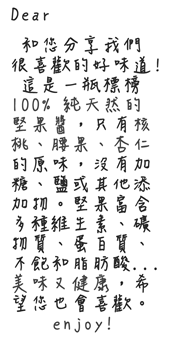 Dear
和您分享我們
很喜歡的好味道!
這是一瓶標榜
100% 純天然的
堅果醬，只有核
桃、腰果、杏仁
的原味，沒有加
糖、鹽或其他添
加物。堅果富含
多種維生素、礦
物質、蛋白質、
不飽和脂肪酸...
美味又健康，希
望您也會喜歡。
enjoy!